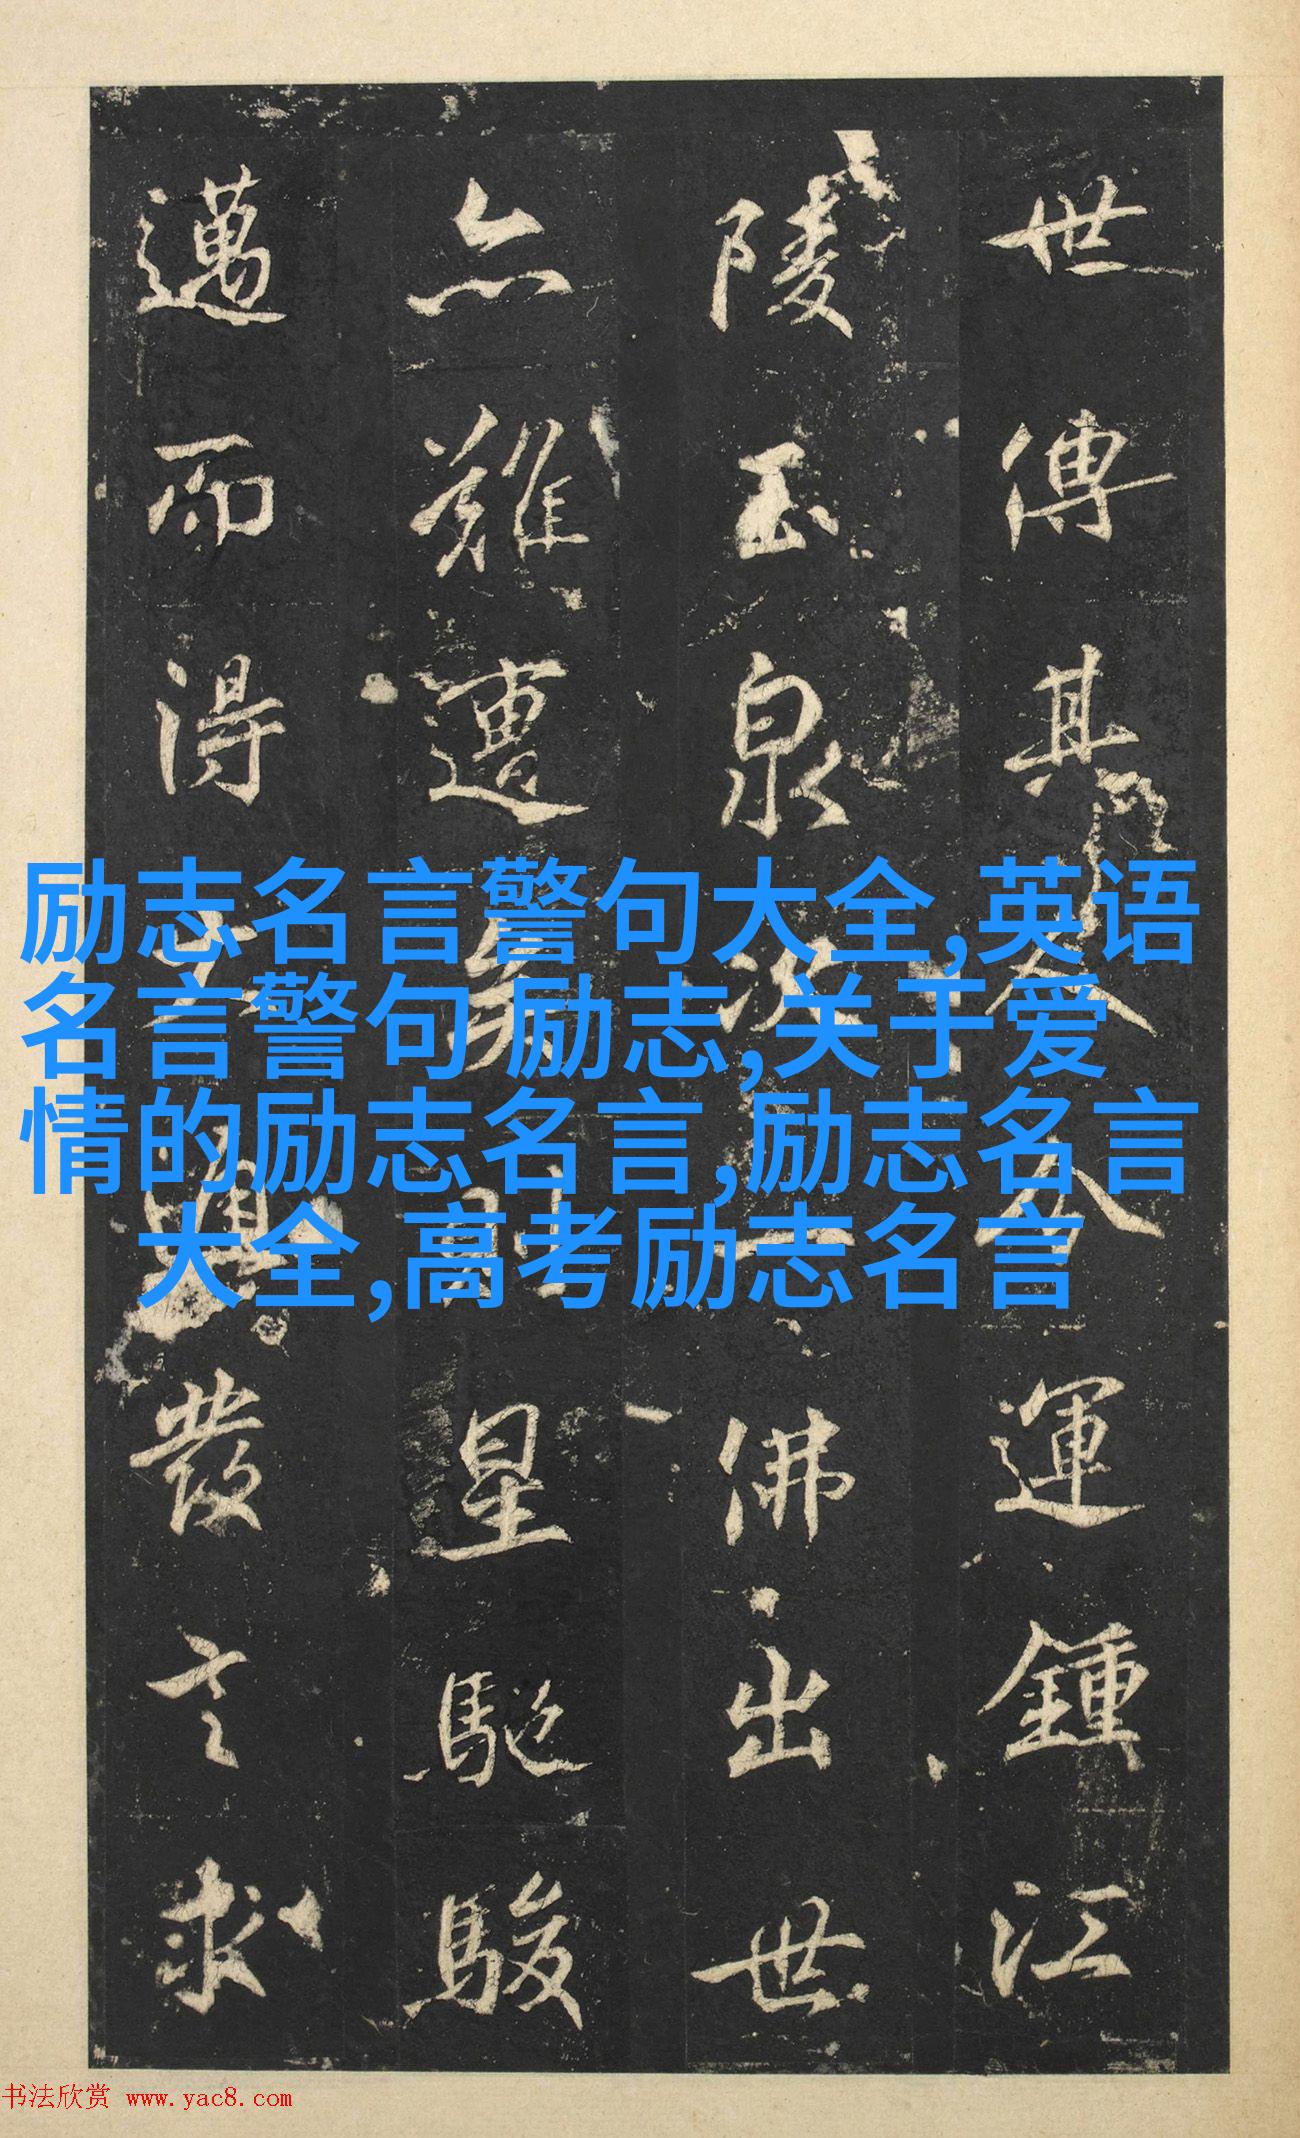 世傳其今運鍾江
陵玉泉次一佛出世
亦難遭則星馳駿
邁而得發言求
励志名言警句大全,英语
名言警句 励志,关于爱
情的励志名言,励志名言
大全,高考励志名言
书法欣赏 www.yac8.com